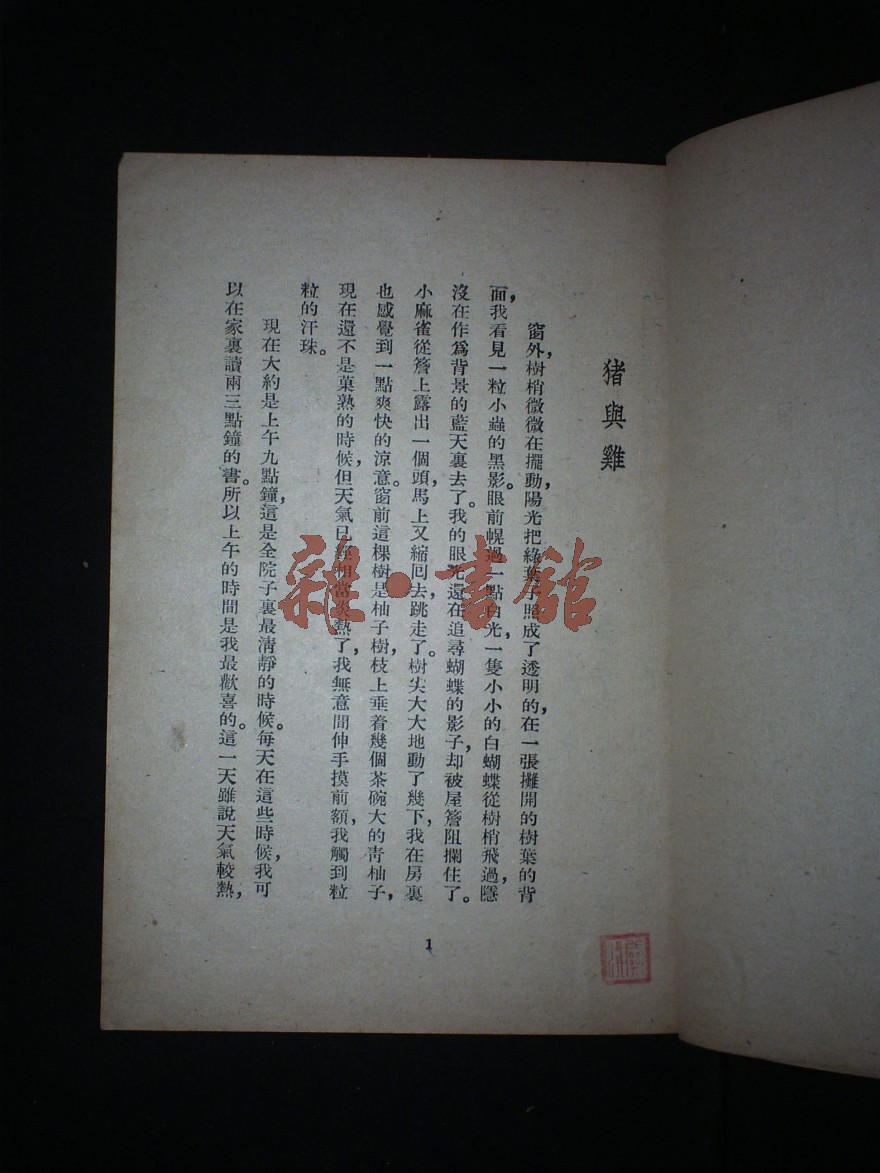 猪與雞
窗外，樹梢微微在擺動，陽光把綠葉子照成了透明的，在一張攤開的樹葉的背
面，我看見一粒小蟲的黑影。眼前幌過一點白光，一隻小小的白蝴蝶從樹梢飛過，隱
沒在作爲背景的藍天裏去了。我的眼光還在追尋蝴蝶的影子，却被屋簷阻攔住了。
小麻雀從簷上露出一個頭，馬上又縮囘去跳走了。樹尖大大地動了幾下，我在房裏
也感覺到一點爽快的涼意。窗前這棵樹是柚子樹，枝上垂着幾個茶碗大的靑柚子，
現在還不是菓熟的時候，但天氣已經相當炎熱了，我無意間伸手摸前額，我觸到粒
粒的汗珠。
現在大約是上午九點鐘，這是全院子裏最淸靜的時候。每天在這些時候，我可
以在家裏讀兩三點鐘的書。所以上午的時間是我最歡喜的。這一天雖說天氣較熱，
1
雜·書舘